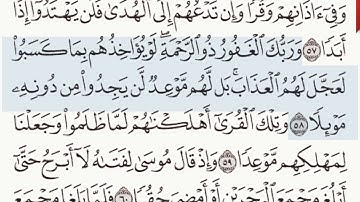 وَفِيٓ ءَاذَانِهِمۡ وَقۡرٗاۖ وَإِن تَدۡعُهُمۡ إِلَى ٱلۡهُدَىٰ فَلَن يَهۡتَدُوٓاْ إِذًا
أَبَدٗا ٥٧ وَرَبُّكَ ٱلۡغَفُورُ ذُو ٱلرَّحۡمَةِۖ لَوۡ يُؤَاخِذُهُم بِمَا كَسَبُواْ
لَعَجَّلَ لَهُمُ ٱلۡعَذَابَۚ بَل لَّهُم مَّوۡعِدٞ لَّن يَجِدُواْ مِن دُونِهِۦ
مَوۡئِلٗا ٥٨ وَتِلۡكَ ٱلۡقُرَىٰٓ أَهۡلَكۡنَٰهُمۡ لَمَّا ظَلَمُواْ وَجَعَلۡنَا
لِمَهۡلِكِهِم مَّوۡعِدٗا ٥٩ وَإِذۡ قَالَ مُوسَىٰ لِفَتَىٰهُ لَآ أَبۡرَحُ حَتَّىٰٓ
أَبۡلُغَ مَجۡمَعَ ٱلۡبَحۡرَيۡنِ أَوۡ أَمۡضِيَ حُقُبٗا ٦٠ فَلَمَّا بَلَغَا مَجۡمَعَ